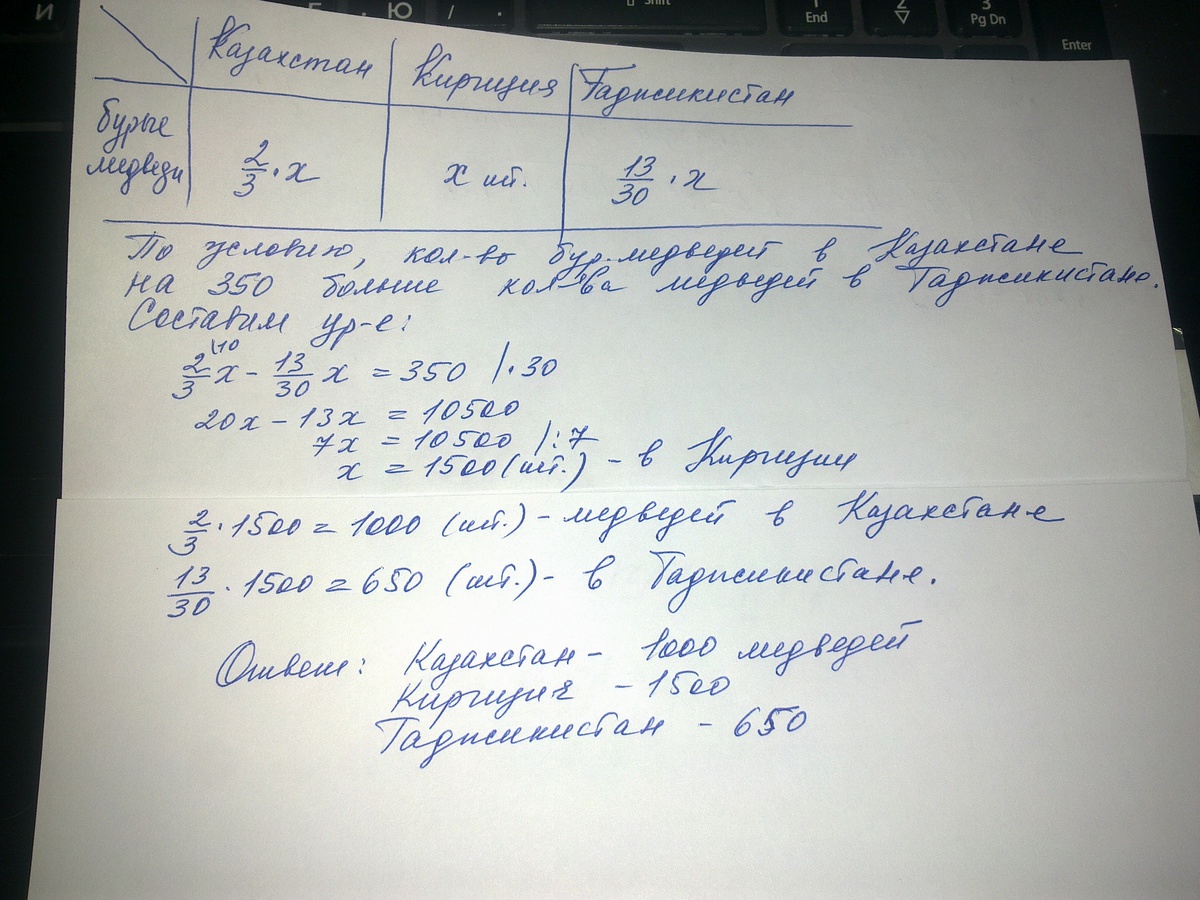 И Б . Ю / . Shift 1 End 2 3 Pg Dn Enter
Казахстан Киргизия Таджикистан
бурые медведи 2/3 · x x шт. 13/30 · x
По условию, кол-во бур. медведей в Казахстане
на 350 больше кол-ва медведей в Таджикистане.
Составим ур-е:
2/3 \10 x - 13/30 x = 350 |·30
20x - 13x = 10500
7x = 10500 |:7
x = 1500 (шт.) - в Киргизии
2/3 · 1500 = 1000 (шт.) - медведей в Казахстане
13/30 · 1500 = 650 (шт.) - в Таджикистане.
Ответ: Казахстан - 1000 медведей
Киргизия - 1500
Таджикистан - 650